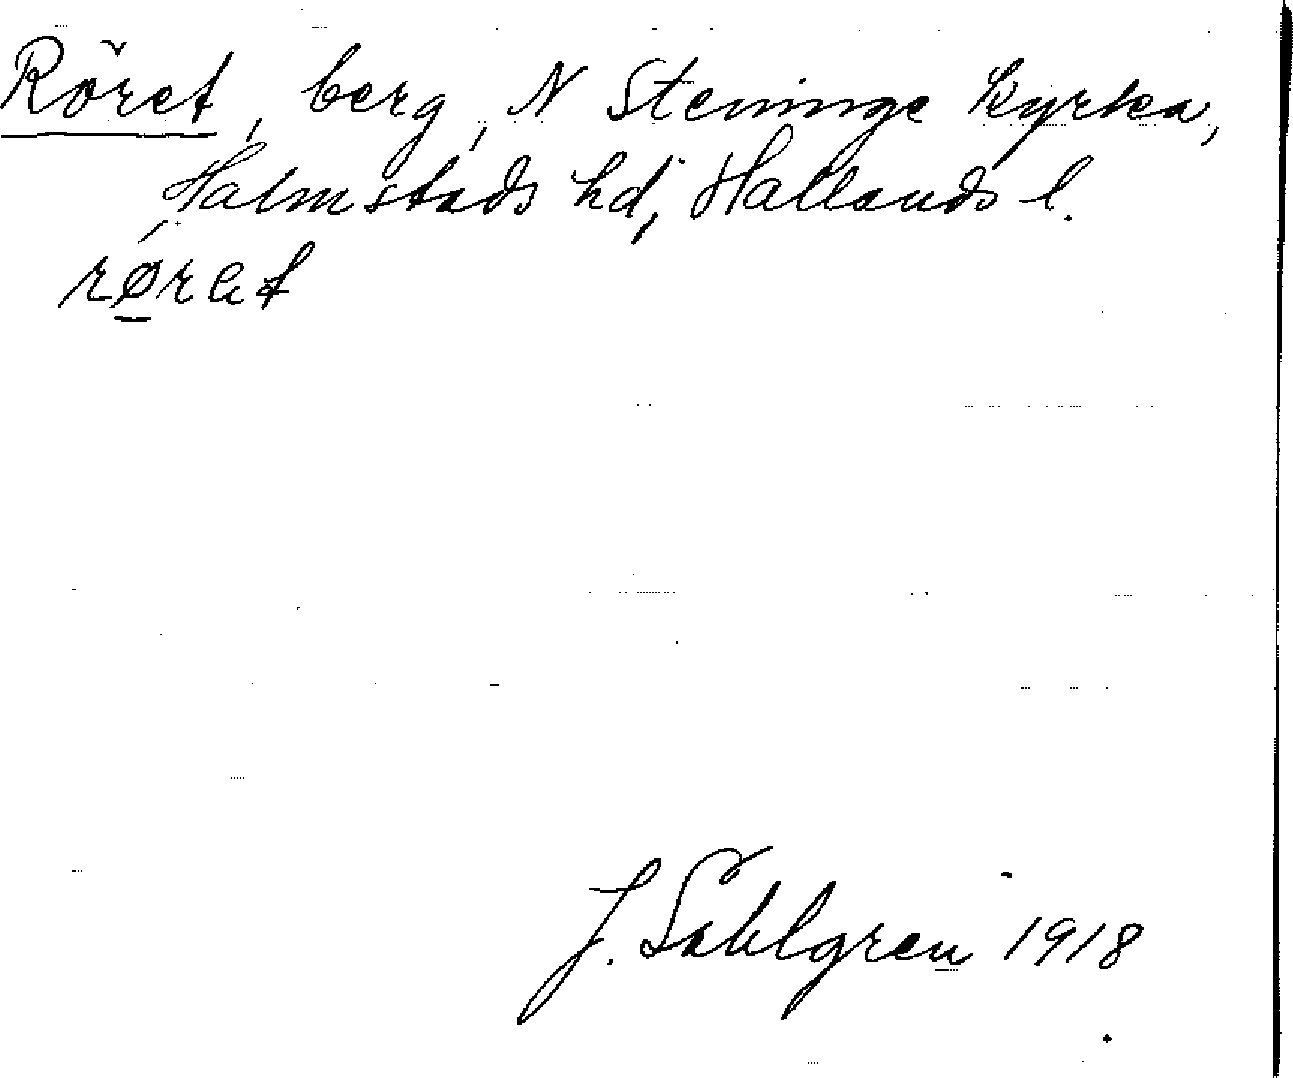 Röret, berg, N Steninge kyrka,
Halmstads hd, Hallands l.
rørət
J. Sahlgren 1918